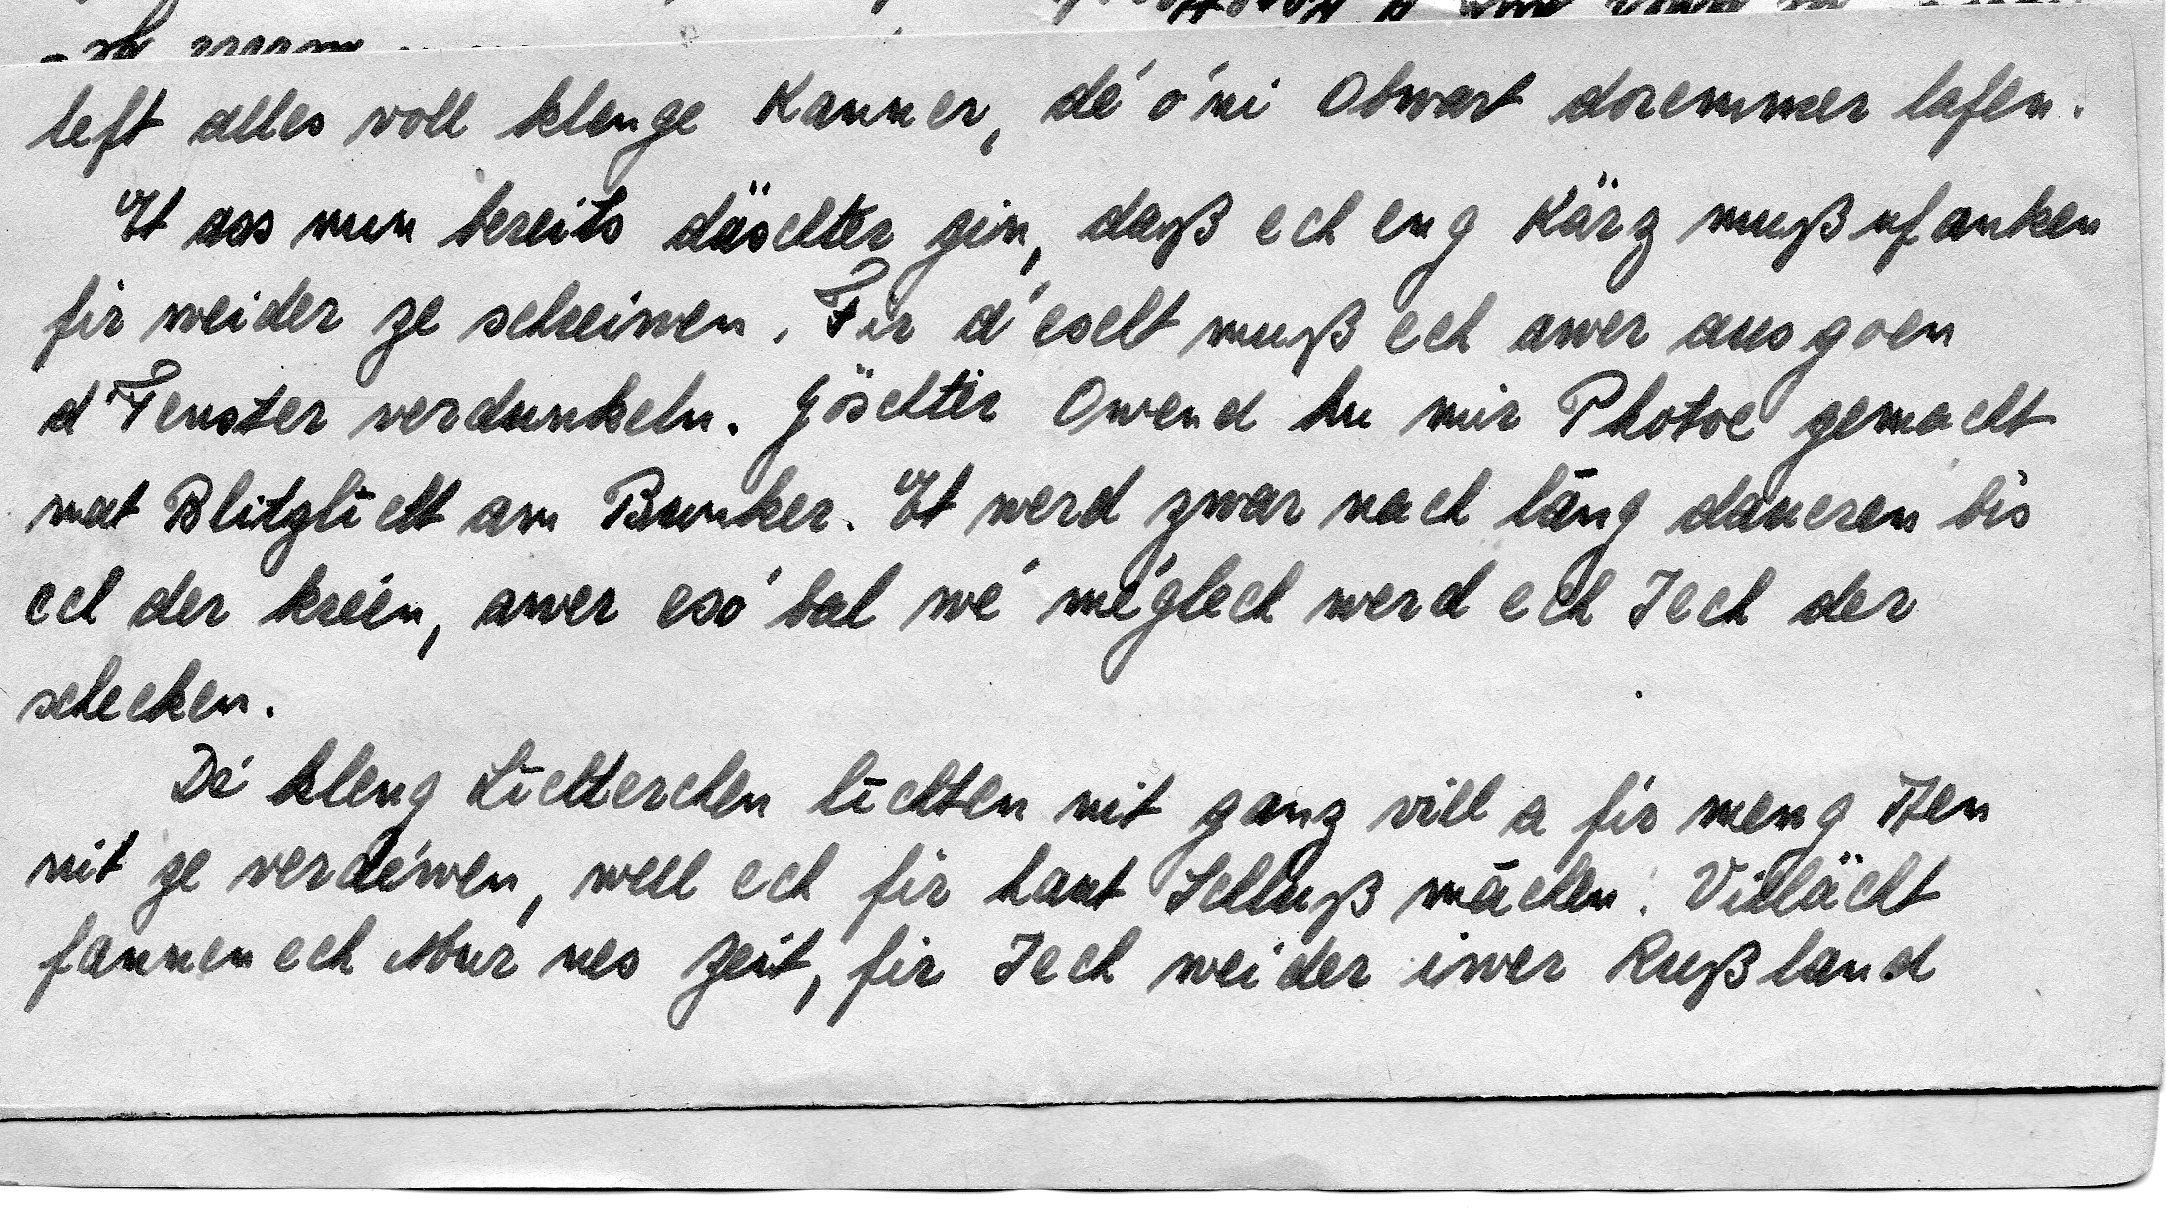 left alles voll klenge Kanner, dé óni Obwart doremmer lafen.
Et ass nun bereits däschter gin, daß ech eng Kärz muß ufanken
fir weider ze schreiwen. Fir d'éischt muß ech awer ausgoen
d'Fenster verdunkeln. Göschter Owend hu mir Photoe gemacht
mat Blitzlicht am Bunker. Et werd zwar nach läng daueren bis
ech der kréien, awer esó bal wé méglech werd ech Iech der
schecken.
Dé kleng Liichterchen liichten nit ganz vill a fir meng Aen
nit ze verdéwen, well ech fir haut Schluß mächen. Villächt
fannen ech Mur nes Zeit, fir Iech weider iwer Rußland